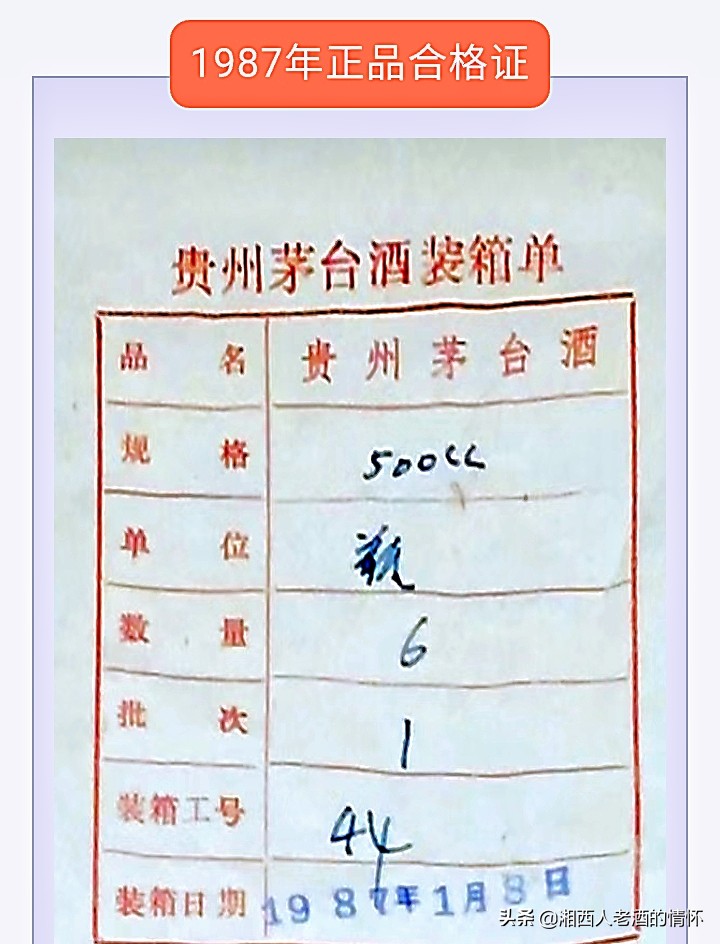 1987年正品合格证
贵州茅台酒装箱单
品名 贵州茅台酒
规格 500cc
单位 瓶
数量 6
批次 1
装箱工号 44
装箱日期 1987年1月8日
头条 @湘西人老酒的情怀